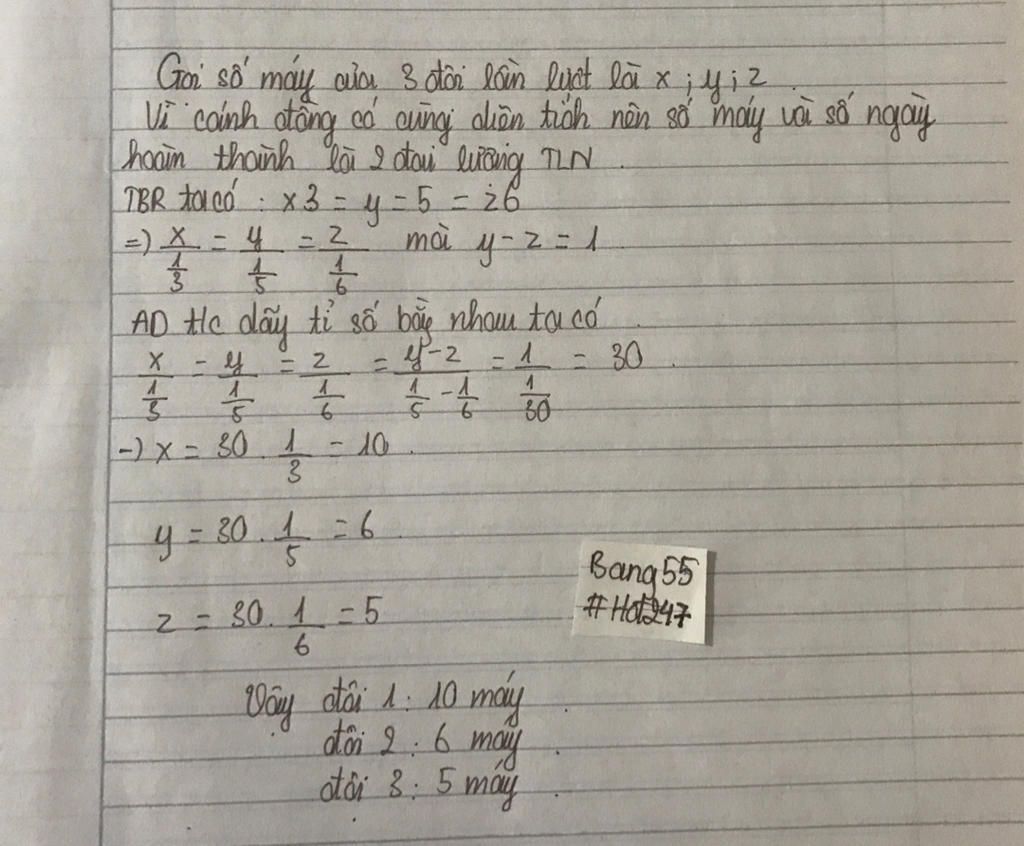 Gọi số máy của 3 đội lần lượt là x ; y ; z
Vì cánh đồng có cùng diện tích nên số máy và số ngày
hoàn thành là 2 đại lượng TLN .
TBR ta có : x3 = y = 5 = z6
=) x/(1/3) = y/(1/5) = z/(1/6) mà y - z = 1
AD t/c dãy tỉ số bằg nhau ta có .
x/(1/3) = y/(1/5) = z/(1/6) = (y-z)/(1/5 - 1/6) = 1/(1/30) = 30 .
-) x = 30 . 1/3 = 10 .
y = 30 . 1/5 = 6 .
z = 30 . 1/6 = 5
Bang55
#Hd247
Vậy đội 1 : 10 máy .
đội 2 : 6 máy .
đội 3 : 5 máy .